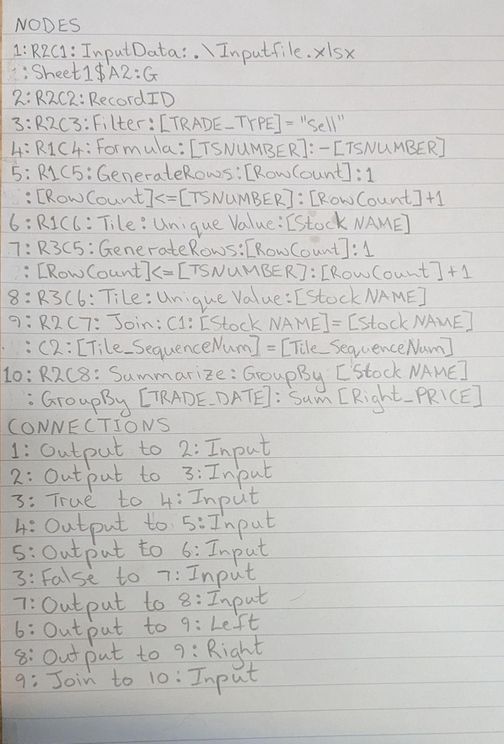 NODES
1:R2C1:InputData:.\Inputfile.xlsx
:Sheet1$A2:G
2:R2C2:RecordID
3:R2C3:Filter:[TRADE_TYPE]="Sell"
4:R1C4:Formula:[TSNUMBER]:-[TSNUMBER]
5:R1C5:GenerateRows:[RowCount]:1
:[RowCount]<=[TSNUMBER]:[RowCount]+1
6:R1C6:Tile:Unique Value:[Stock NAME]
7:R3C5:GenerateRows:[RowCount]:1
:[RowCount]<=[TSNUMBER]:[RowCount]+1
8:R3C6:Tile:Unique Value:[Stock NAME]
9:R2C7:Join:C1:[Stock NAME]=[Stock NAME]
:C2:[Tile_SequenceNum]=[Tile_SequenceNum]
10:R2C8:Summarize:GroupBy [Stock NAME]
:GroupBy [TRADE_DATE]:Sum [Right_PRICE]
CONNECTIONS
1:Output to 2:Input
2:Output to 3:Input
3:True to 4:Input
4:Output to 5:Input
5:Output to 6:Input
3:False to 7:Input
7:Output to 8:Input
6:Output to 9:Left
8:Output to 9:Right
9:Join to 10:Input